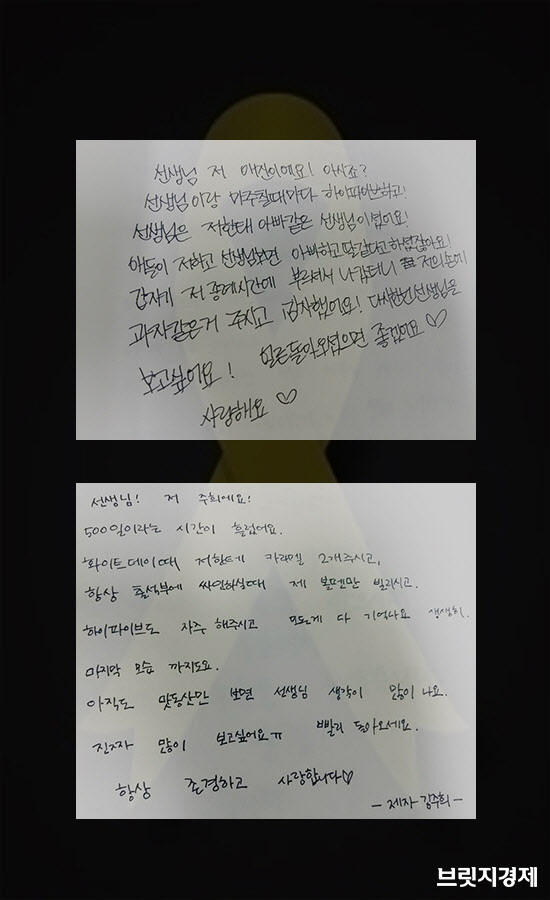 선생님 저 애진이에요! 아시죠?
선생님이랑 마주칠때마다 하이파이브하고!
선생님은 저한태 아빠같은 선생님이셨어요!
애들이 저하고 선생님보면 아빠하고 딸같다고 하셨잖아요!
갑자기 저 종례시간에 부르셔서 나갔더니 저의손에
과자같은거 주시고 감사했어요! 다시한번 선생님을
보고싶어요! 얼른돌아오셨으면 좋겠어요♡
사랑해요♡
선생님! 저 주희에요!
500일이라는 시간이 흘렀어요.
화이트데이때 저한테 카라멜 2개주시고,
항상 출석부에 싸인하실때 제 볼펜만 빌리시고.
하이파이브도 자주 해주시고 모든게 다 기억나요 생생히.
마지막 모습 까지도요.
아직도 맛동산만 보면 선생님 생각이 많이 나요.
진짜 많이 보고싶어요ㅠ 빨리 돌아오세요.
항상 존경하고 사랑합니다♡
- 제자 김주희 -
브릿지경제